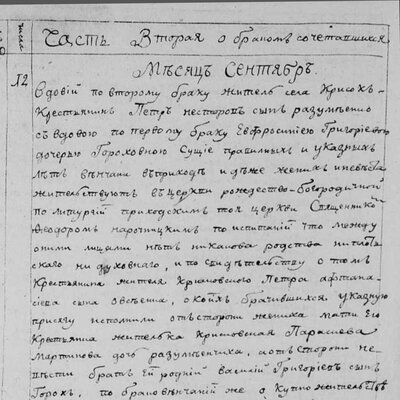 число
Часть Вторая о браком сочетавшихся
Месяц Сентябрь.
12
Вдовій по второму браку житель села Крисокъ
Крестьянин Петръ несторовъ сынъ разумѣнко
съ вдовою по первому браку Евфросиніею Григоріевою
дочерью Гороховною Сущіе правилныхъ и указныхъ
лѣтъ вѣнчани въ приходѣ идѣже женихъ и невѣста
жителствуютъ въ церкви рождество-богородичной
по литургіи приходскимъ тоя церкви Священникомъ
Ѳеодоромъ по испытаніи что между
оними лицами нѣтъ никакова родства ни плотскаго
ни духовнаго, и по свидѣтельству о томъ
Крестьянина жителя Петра афанасіева
сына, о коихъ брачившихся указную
присягу исполнили отъ стороны жениха матки его
Крестьянка жителька Парасева
Мартинова дочь разумѣнчиха, а отъ стороны невѣсти
братъ Ей родній василій Григоріевъ сынъ
Горохъ, по браковѣнчаній же о Купножителствѣ